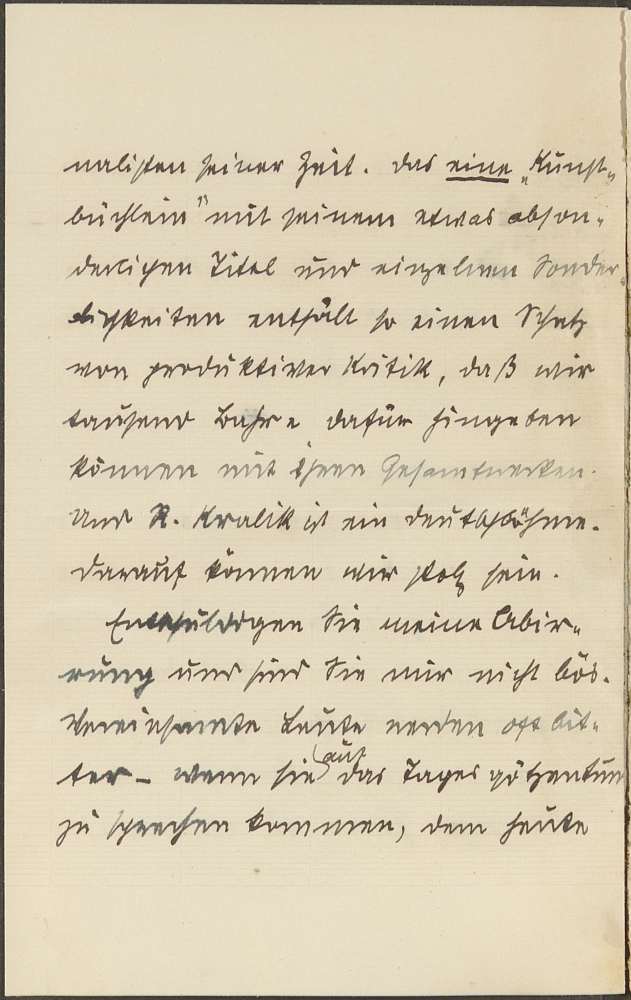 nalisten seiner Zeit. Das eine „Kunst-
büchlein" mit seinem etwas abson-
derlichen Titel und einzelnen Sonder-
lichkeiten enthält so einen Schatz
von produktiver Kritik, daß wir
tausend Bahre dafür hingeben
können mit ihren Gesamtwerken.
Und R. Kralik ist ein Deutschböhme.
Darauf können wir stolz sein.
Entschuldigen Sie meine Abir-
rung und sind Sie mir nicht bös.
Vereinsamte Leute werden oft bit-
ter – wenn sie auf das Tagesgötzentum
zu sprechen kommen, dem heute